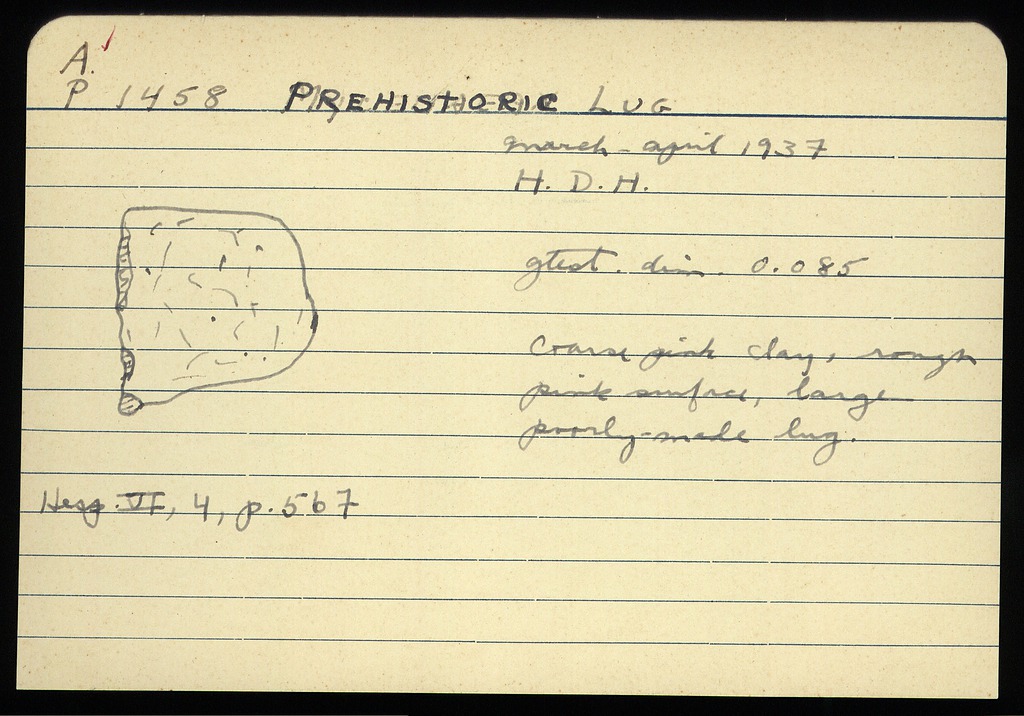 A.
P 1458 PREHISTORIC LUG
March-April 1937
H. D. H.
gtest. dim. 0.085
Coarse pink clay, rough
pink surface, large
poorly-made lug.
Hesp. VI, 4, p. 567